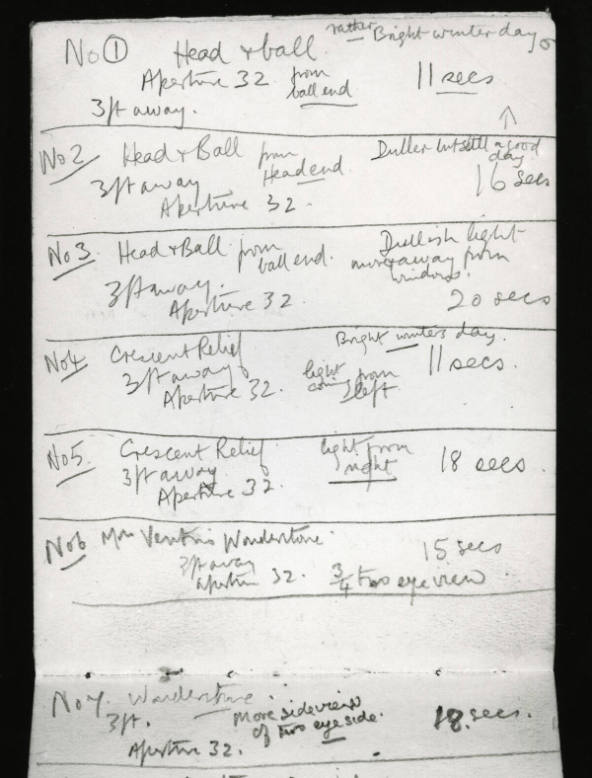 No ① Head + ball. rather Bright winter day
Aperture 32 from ball end 11 secs
3ft away.
No 2 Head + Ball from Head end. Duller but still a good day
3ft away 16 secs
Aperture 32.
No 3. Head + Ball from ball end. Dullish light
more away from windows.
3ft away.
Aperture 32. 20 secs
No 4 Crescent Relief Bright winters day.
3ft away light coming from left 11 secs
Aperture 32.
No 5. Crescent Relief light from right 18 secs.
3ft away
Aperture 32.
No 6 Mrs Ventris Wonderstone. 15 secs
3ft away
Aperture 32. 3/4 two eye view
No 7. Wonderstone.
3ft. More sideview of two eye side. 18 secs.
Aperture 32.